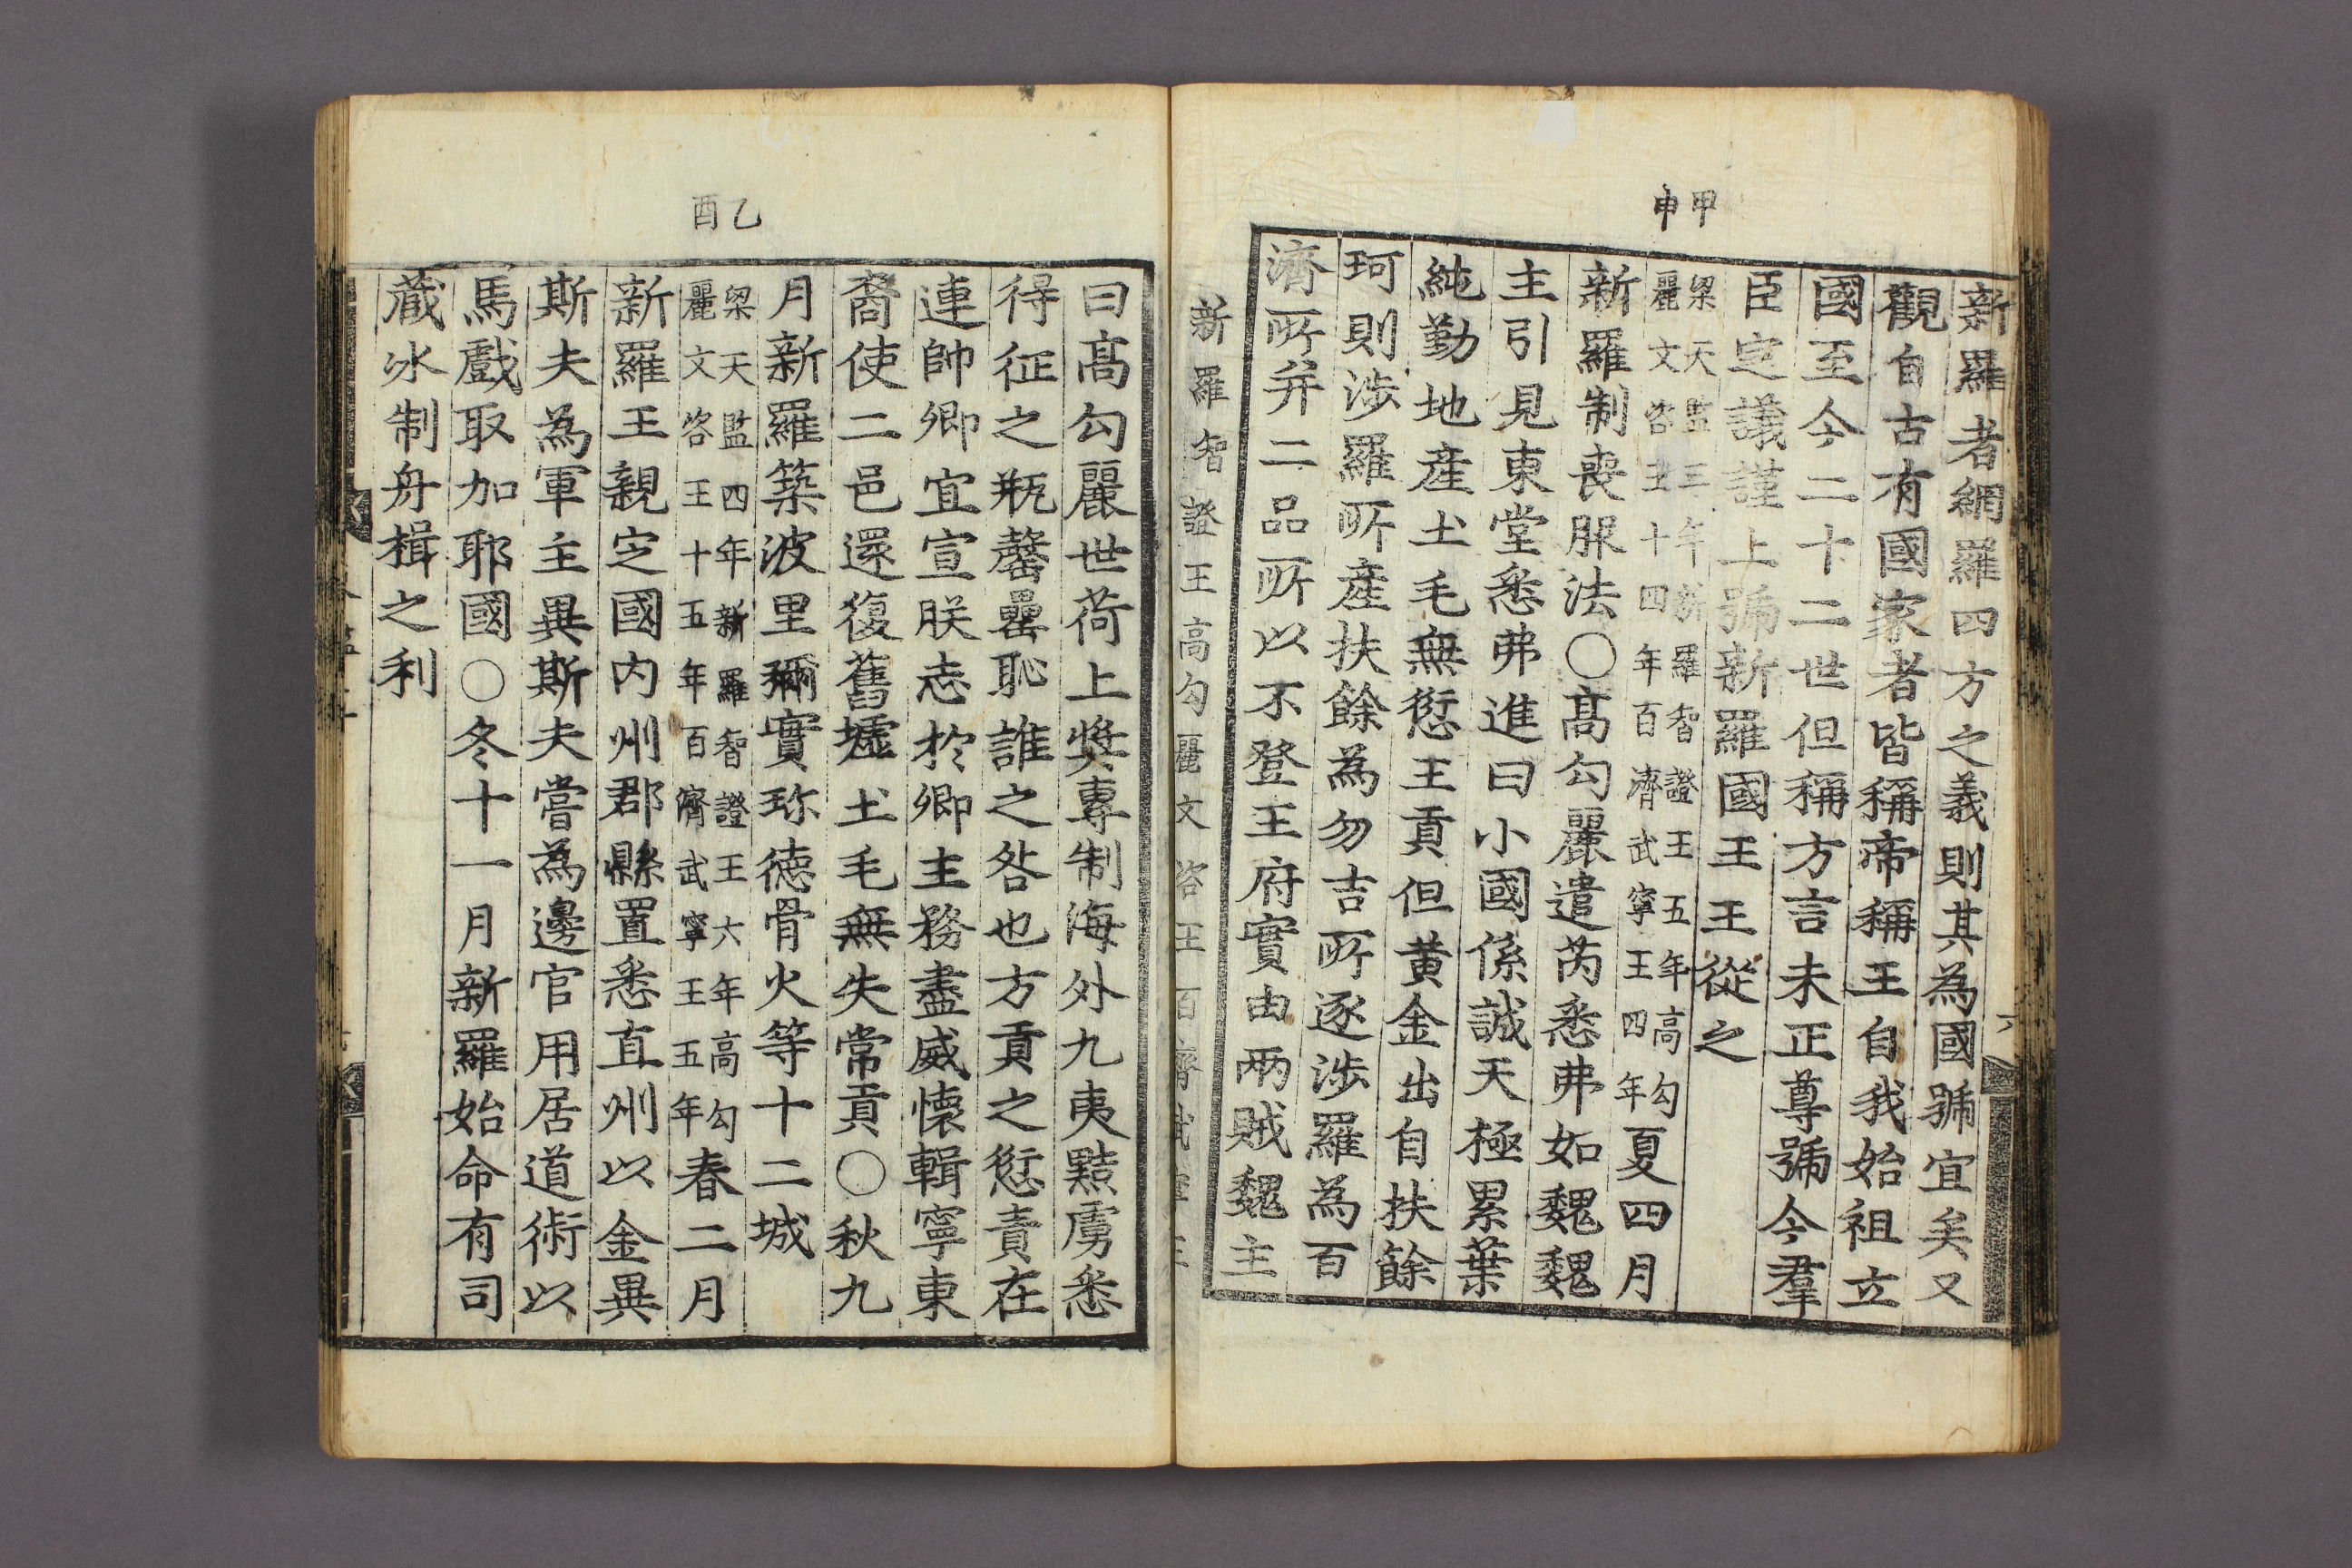 甲申
新羅者網羅四方之義則其為國號宜矣又
觀自古有國家者皆稱帝稱王自我始祖立
國至今二十二世但稱方言未正尊號今羣
臣定議謹上號新羅國王王從之
梁天監三年新羅智證王五年高勾
麗文咨王十四年百濟武寧王四年夏四月
新羅制喪服法○高勾麗遣芮悉弗如魏魏
主引見東堂悉弗進曰小國係誠天極累葉
純勤地產土毛無愆王貢但黃金出自扶餘
珂則涉羅所產扶餘為勿吉所逐涉羅為百
濟所并二品所以不登王府實由兩賊魏主
新羅智證王高勾麗文咨王百濟武寧王
乙酉
曰髙勾麗世荷上奬專制海外九夷黠虜悉
得征之瓶罄罍恥誰之咎也方貢之愆責在
連帥卿宜宣朕志於卿主務盡威懷輯寧東
裔使二邑還復舊墟土毛無失常貢○秋九
月新羅築波里彌實珎德骨火等十二城
梁天監四年新羅智證王六年高勾
麗文咨王十五年百濟武寧王五年春二月
新羅王親定國內州郡縣置悉直州以金異
斯夫為軍主異斯夫嘗為邊官用居道術以
馬戲取加耶國○冬十一月新羅始命有司
藏氷制舟楫之利